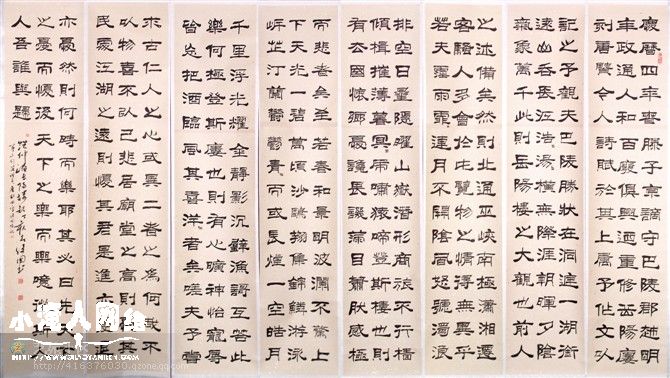 慶曆四年春滕子京謫守巴陵郡越明
年政通人和百廢俱興乃重修岳陽樓
刻唐賢今人詩賦於其上屬予作文以
記之予觀夫巴陵勝狀在洞庭一湖銜
遠山吞長江浩浩湯湯橫無際涯朝暉夕陰
氣象萬千此則岳陽樓之大觀也前人
之述備矣然則北通巫峽南極瀟湘遷
客騷人多會於此覽物之情得無異乎
若夫霪雨霏霏連月不開陰風怒號濁浪
排空日星隱曜山嶽潛形商旅不行檣
傾楫摧薄暮冥冥虎嘯猿啼登斯樓也則
有去國懷鄉憂讒畏譏滿目蕭然感極
而悲者矣至若春和景明波瀾不驚上
下天光一碧萬頃沙鷗翔集錦鱗游泳
岸芷汀蘭鬱鬱青青而或長煙一空皓月
千里浮光耀金靜影沉璧漁謌互答此
樂何極登斯樓也則有心曠神怡寵辱
皆忘把酒臨風其喜洋洋者矣嗟夫予嘗
求古仁人之心或異二者之為何哉不
以物喜不以己悲居廟堂之高則憂其
民處江湖之遠則憂其君是進
亦憂然則何時而樂耶其必曰先
之憂而憂後天下之樂而樂歟噫微
人吾誰與歸
http://416376030.qzone.qq.com